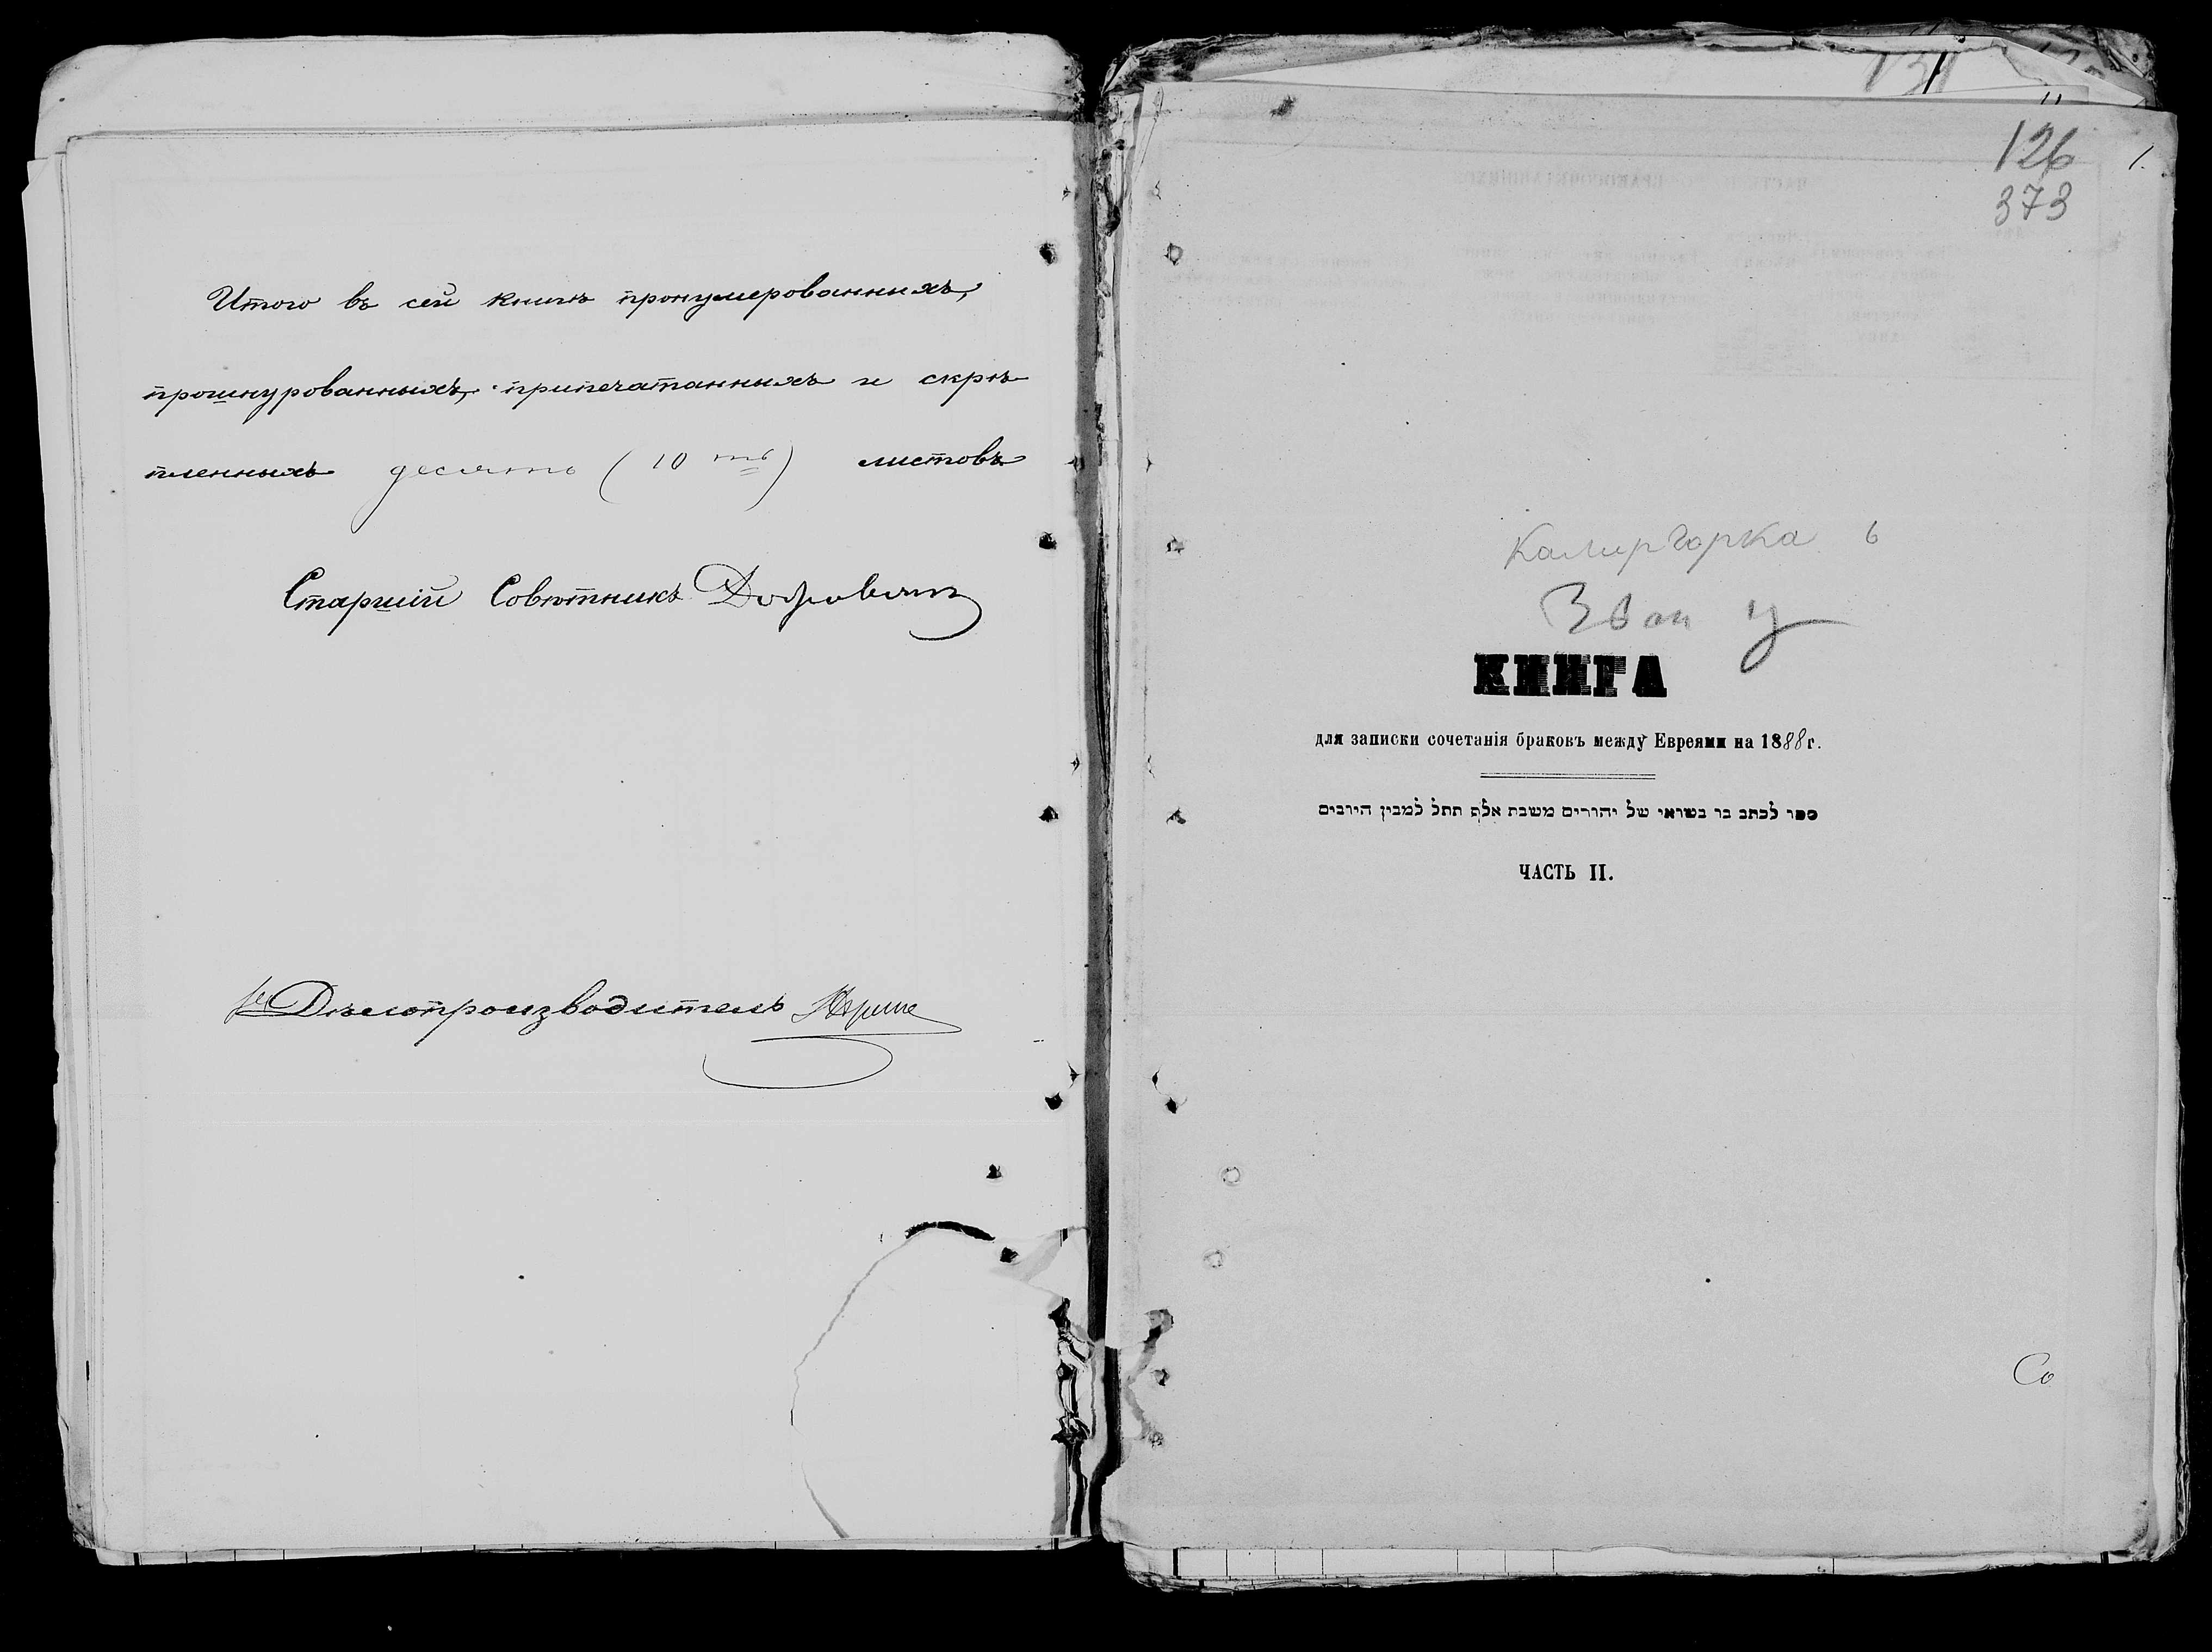 Итого въ сей книгѣ пронумерованныхъ,
прошнурованныхъ, припечатанныхъ и скрѣ
пленныхъ десять (10 ть) листовъ
Старшій Совѣтникъ
Дѣлопроизводитель
131
126 1.
373
Калигорка 6
Звен у
КНИГА
для записки сочетанія браковъ между Евреями на 1888 г.
ספר לכתב בו בשואי של יהודים משבת אלף תתל למבין היובים
ЧАСТЬ II.
Со